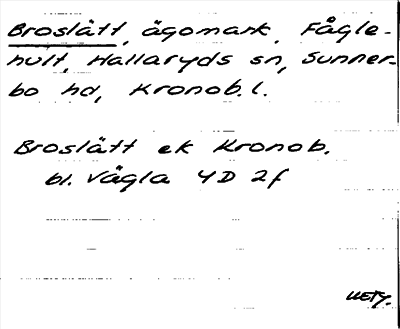 Broslätt, ägomark, Fågle-
hult, Hallaryds sn, Sunner-
bo hd, Kronob. l.
Broslätt ek Kronob.
bl. Vägla 4D 2f